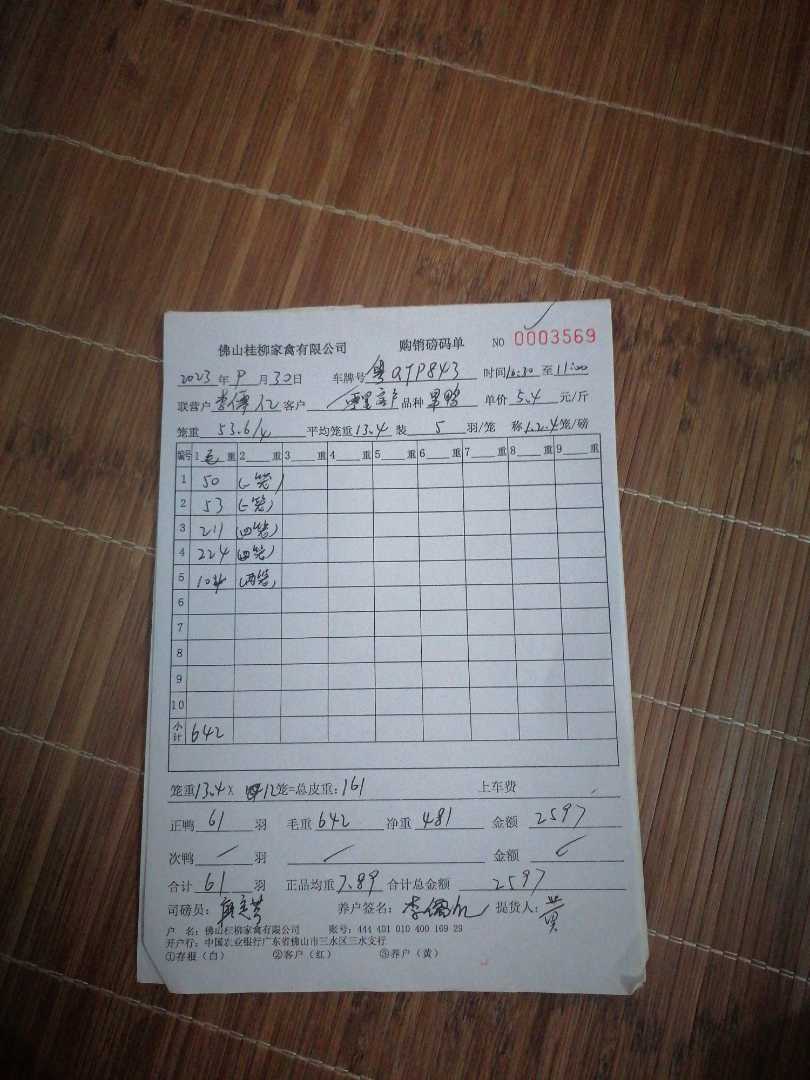 佛山桂柳家禽有限公司 购销磅码单 NO 0003569
2023年 9月30日 车牌号 粤QTP843 时间10:30至11:00
联营户 李 客户 品种 单价 5.4 元/斤
笼重 53.6/4 平均笼重 13.4 装 5 羽/笼 称1.2.4笼/磅
编号 1 毛 重 2 重 3 重 4 重 5 重 6 重 7 重 8 重 9 重
1 50 (一笼)
2 53 (一笼)
3 211 (四笼)
4 224 (四笼)
5 104 (两笼)
6
7
8
9
10
小计 642
笼重13.4× 12笼=总皮重:161 上车费
正鸭 61 羽 毛重 642 净重 481 金额 2597
次鸭 羽 金额
合计 61 羽 正品均重 7.89 合计总金额 2597
司磅员: 养户签名:李 提货人:黄
户 名:佛山桂柳家禽有限公司 账号:444 431 010 400 169 29
开户行:中国农业银行广东省佛山市三水区三水支行
①存根(白) ②客户(红) ③养户(黄)